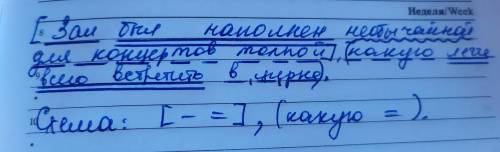 Неделя/Week
[Зал был наполнен необычайной
для концертов толпой], (какую легче
всего встретить в цирке).
Схема: [ - = ], (какую = ).